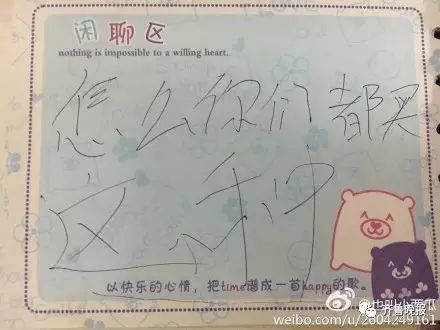 闲聊区
nothing is impossible to a willing heart.
怎么你们都买
这种
以快乐的心情，把time谱成一首happy的歌。
齐鲁晚报
weibo.com/u/2604249161